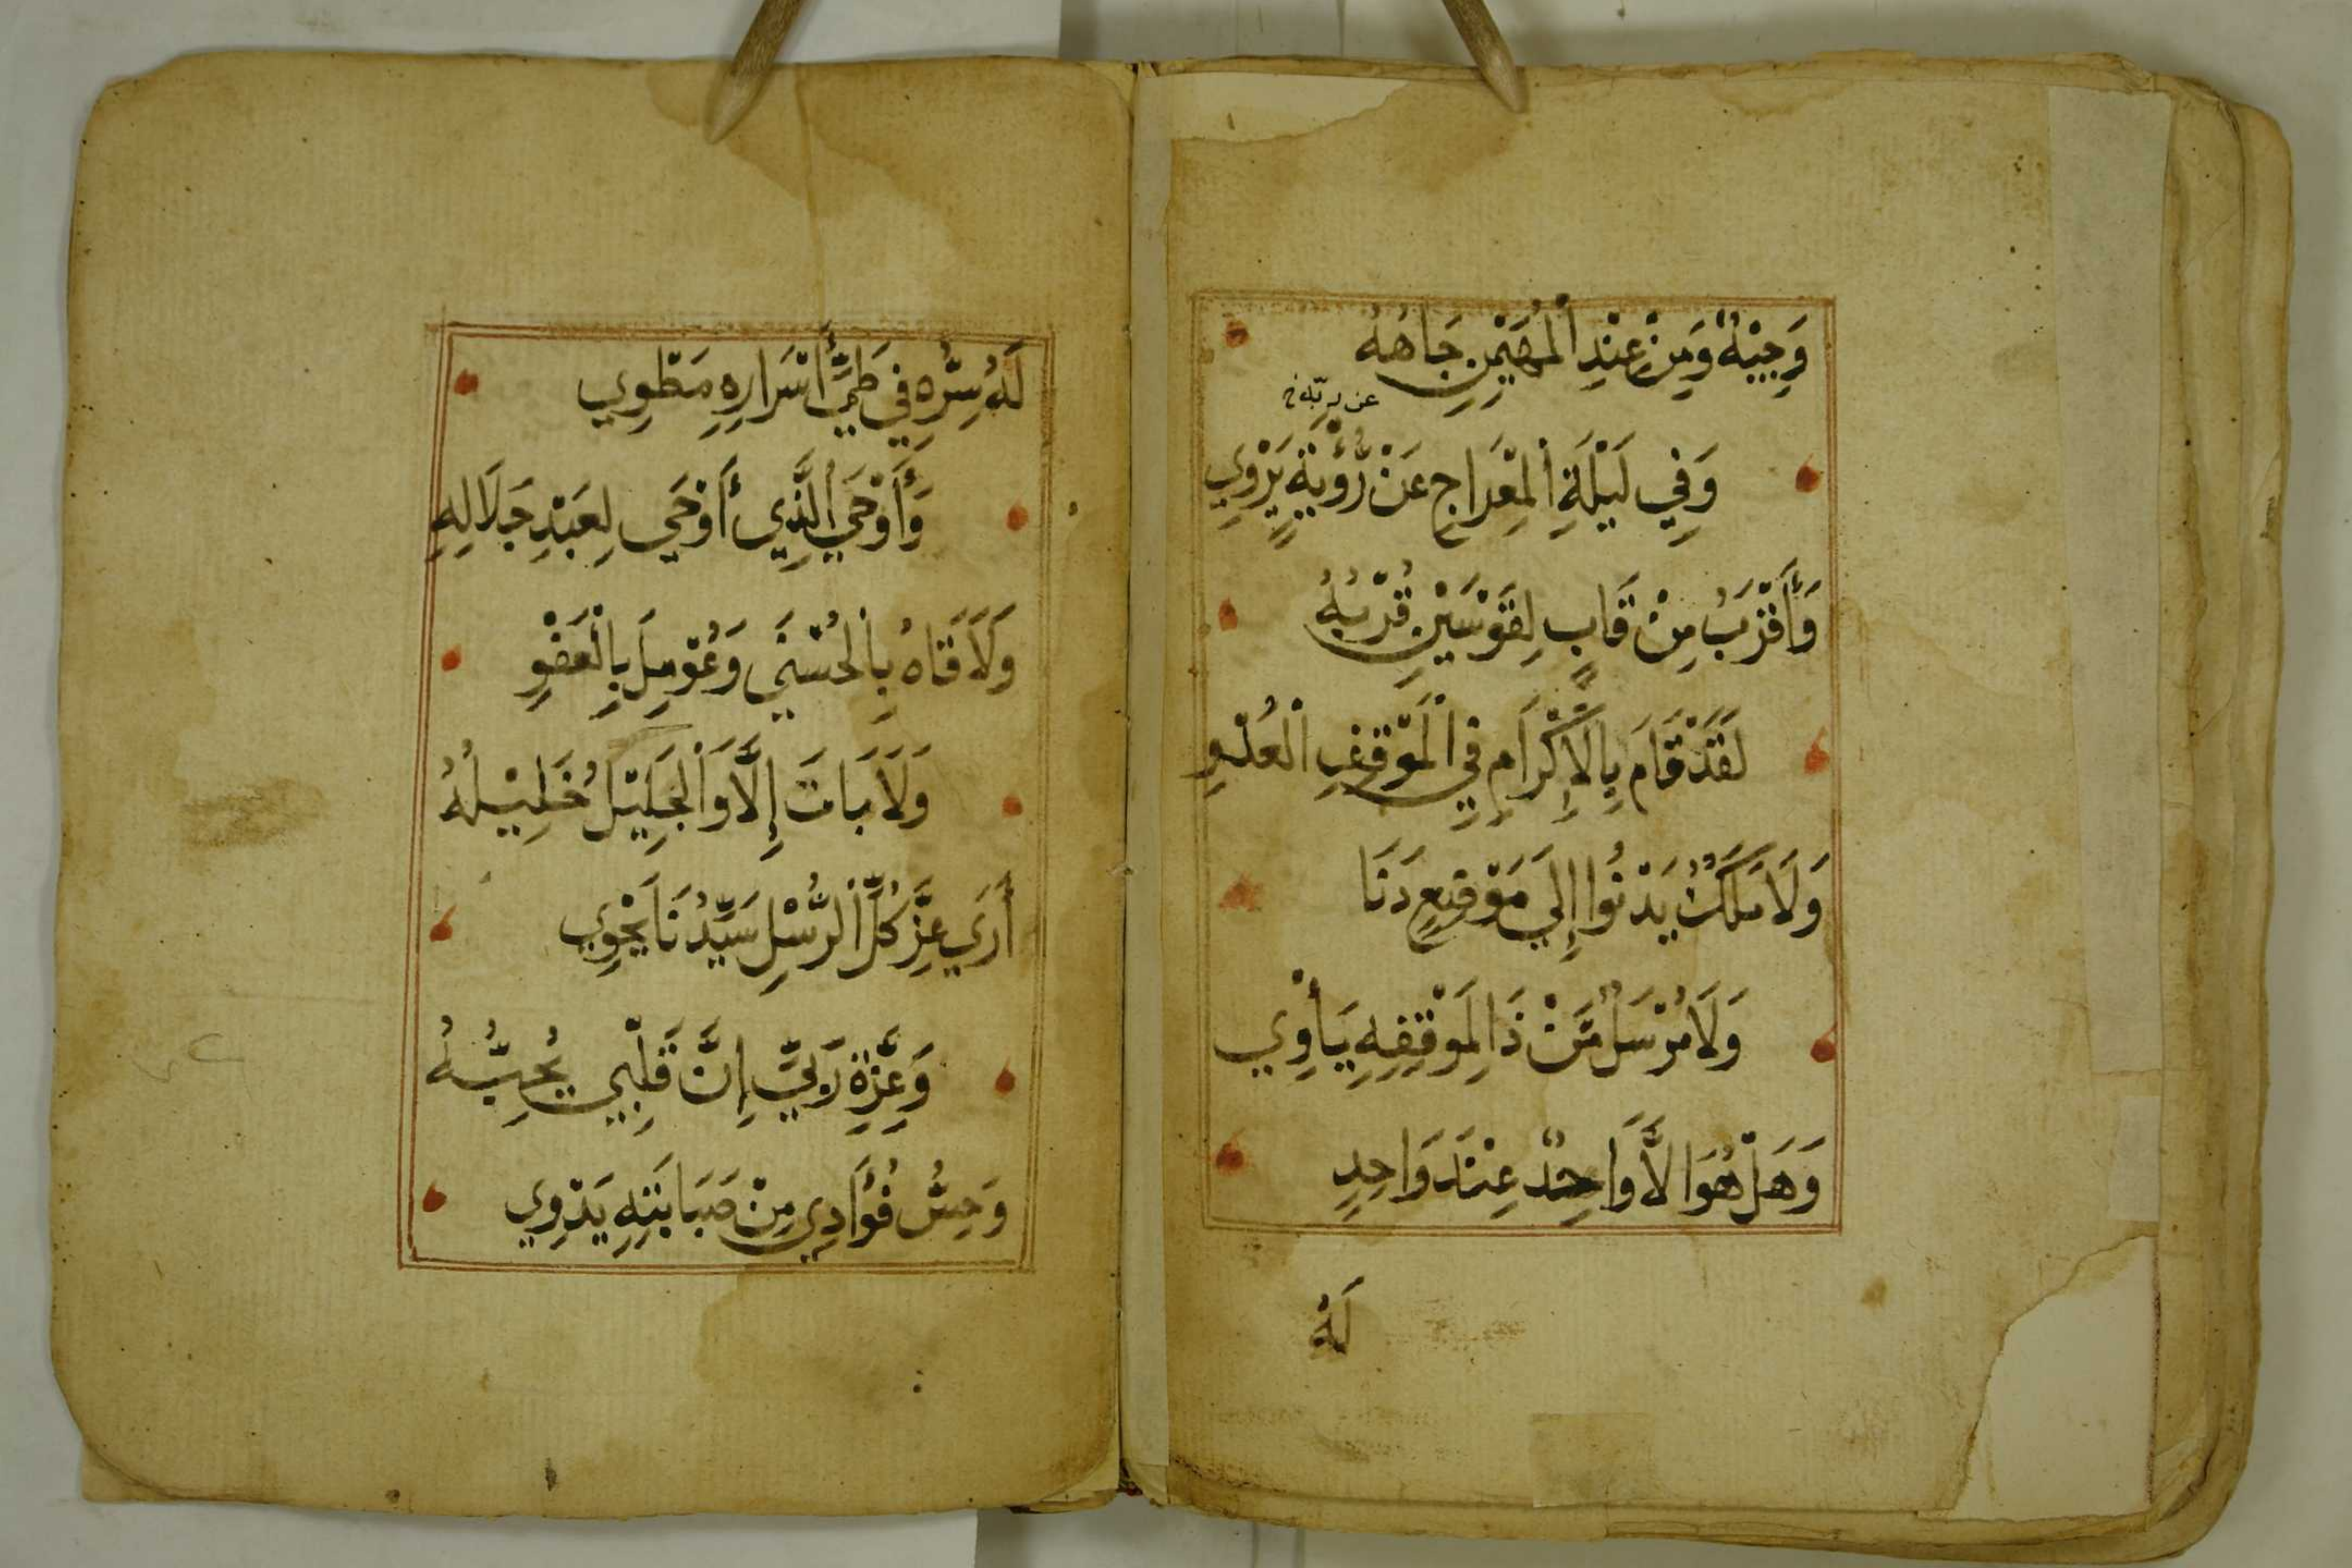 وَجِيْهٌ وَمِنْ عِنْدِ الْمُهَيْمِنِ جَاهُهُ
عن ربّه خ
وَفِي لَيْلَةِ الْمِعْرَاجِ عَنْ رُّؤْيَةٍ يَرْوِي
وَأَقْرَبُ مِنْ قَابٍ لِقَوْسَيْنِ قُرْبُهُ
لَقَدْ قَامَ بِالْإِكْرَامِ فِي الْمَوْقِفِ الْعُدْوِ
وَلَا مَلَكٌ يَدْنُوا إِلَي مَوْقِعٍ دَنَا
وَلَا مُرْسَلٌ مَّنْ ذَا لِمَوْقِفِهِ يَأْوِي
وَهَلْ هُوَا لَّا وَاحِدٌ عِنْدَ وَاحِدٍ
لَهُ
لَهُ سِرُّهُ فِي طَيِّ أَسْرَارِهِ مَطْوِي
وَأَوْحَي الَّذِي أَوْحَي لِعَبْدِ جَلَالِهِ
وَلَاقَاهُ بِالْحُسْنَي وَعُوْمِلَ بِالْعَفْوِ
وَلَا بَاتَ إِلَّا وَالْجَلِيْلُ خَلِيْلُهُ
أَرَي عِزَّ كُلِّ الرُّسْلِ سَيِّدُنَا يَحْوِي
وَعِزَّةِ رَبِّيّ إِنَّ قَلْبِي يُحِبُّهُ
وَحِسُّ فُؤَادِي مِنْ صَبَابَتِهِ يَدْوِي